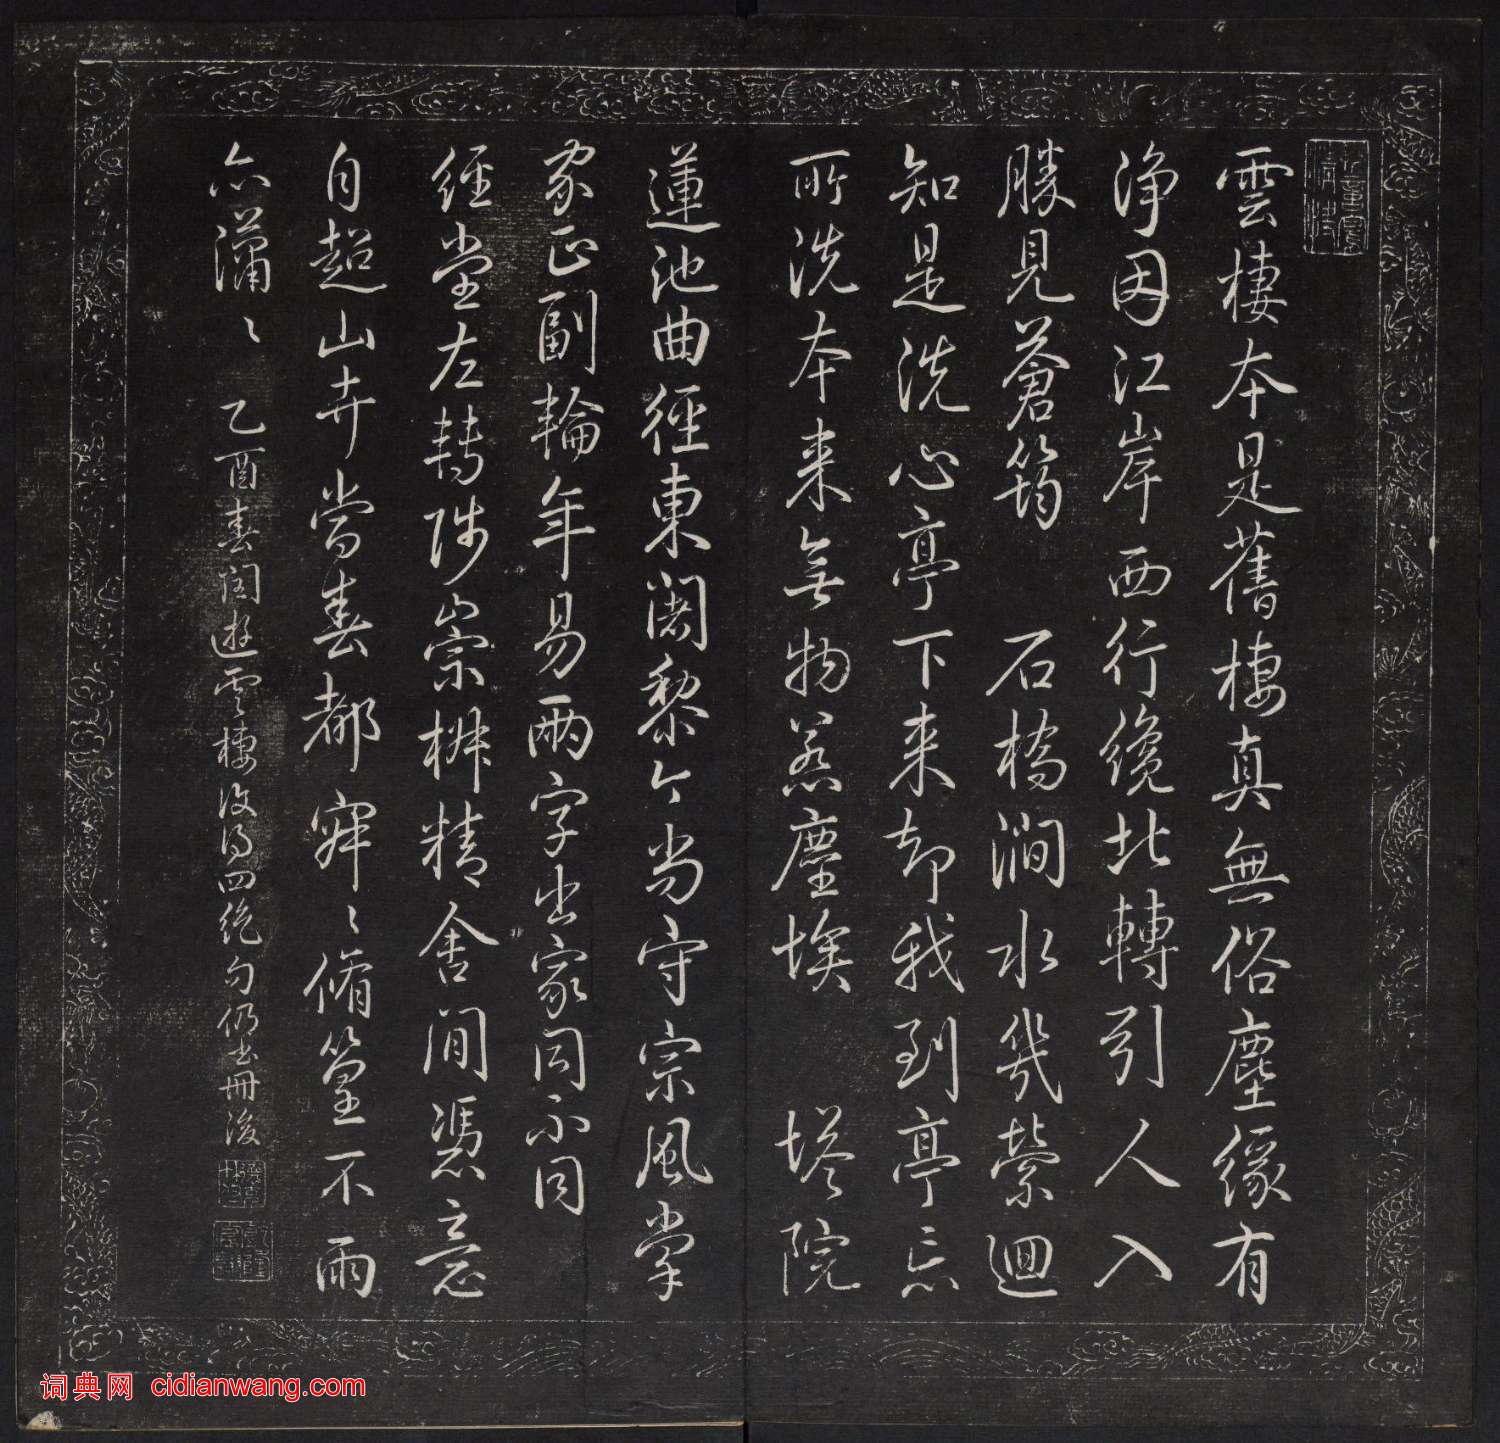 雲棲本是舊棲真無俗塵緣有
淨因江岸西行纔北轉引人入
勝見蒼筠 石橋澗水幾縈迴
知是洗心亭下来却我到亭忘
所洗本来無物惹塵埃 塔院
蓮池曲徑東闍黎今尚守宗風掌
家正副輪年易兩字出家同不同
經堂左轉陟崇椒精舍間憑意
自超山卉當春都寂〻脩篁不雨
亦瀟〻 乙酉春閏遊雲棲復得四絶句仍書冊後
词典网 cidianwang.com